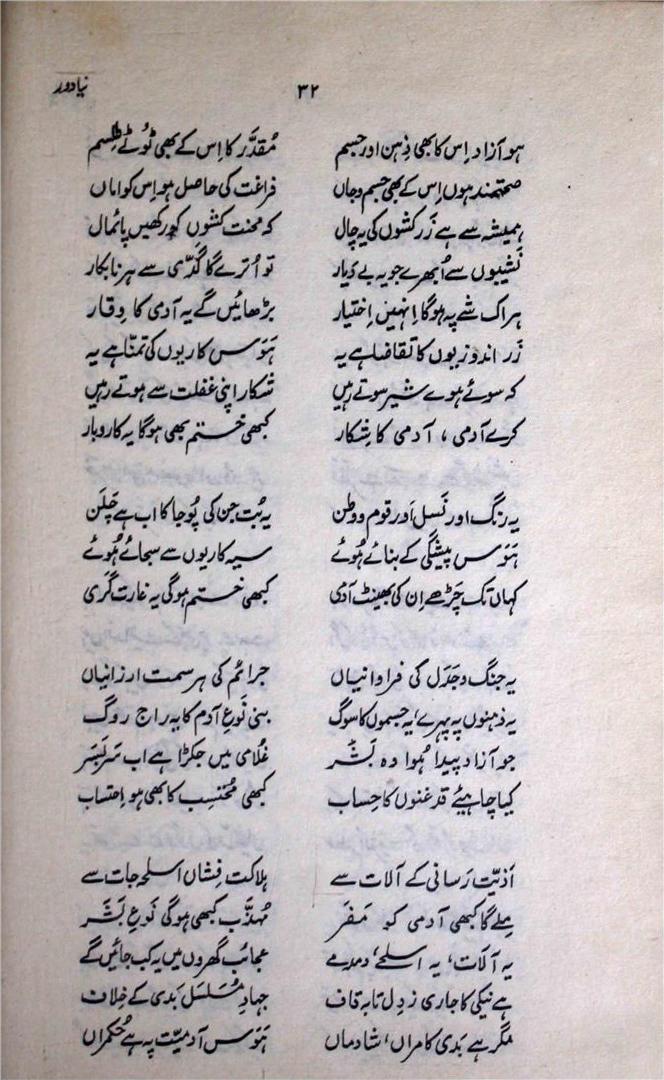 نیا دور ۳۲
ہو آزاد اِس کا بھی ذِہن اور جسم مُقدَّر کا اِس کے بھی ٹوُٹے طِلِسم
صحتمند ہوں اِس کے بھی جسم و جاں فراغت کی حاصل ہو اِس کو اماں
ہمیشہ سے ہے زَر کشوں کی یہ چال کہ محنت کشوں کو رکھیں پائمال
نَشیبوں سے اُبھرے جو یہ بے دَیار تو اُترے گا گدّی سے ہر نابکار
ہر اک شے پہ ہوگا اِنھیں اِختیار بڑھائیں گے یہ آدمی کا وِقار
زَر اندوزیوں کا تقاضا ہے یہ ہَوَس کاریوں کی تمنّا ہے یہ
کہ سوئے ہوے شیر سوتے رہیں شکار اپنی غفلت سے ہوتے رہیں
کرے آدمی ، آدمی کا شِکار کبھی ختم بھی ہوگا یہ کاروبار
یہ رنگ اور نَسل اَور قوم و وطن یہ بُت جن کی پُوجا کا اب ہے چَلَن
ہَوَس پیشگی کے بنائے ہُوئے سیہ کاریوں سے سجائے ہُوئے
کہاں تک چَڑھے اِن کی بھینٹ آدمی کبھی ختم ہوگی یہ غارت گری
یہ جنگ و جَدَل کی فراوانیاں جرائم کی ہر سمت ارزانیاں
یہ ذہنوں پہ پہرے، یہ جسموں کا سوگ بنی نَوعِ آدم کا یہ راج روگ
جو آزاد پیدا ہُوا وہ بَشَر غُلامی میں جکڑا ہے اب سَر بَسَر
کیا چاہیئے قدغنوں کا حِساب کبھی مُحتسِب کا بھی ہو اِحتساب
اَذیّت رَسانی کے آلات سے ہلاکت فِشاں اسلحہ جات سے
مِلے گا کبھی آدمی کو مَفَر مُہذَّب کبھی ہوگی نَوعِ بَشَر
یہ آلات، یہ اسلحے، دمدمے عجائب گھروں میں یہ کب جائیں گے
ہے نیکی کا جاری ز دِل تا بہ قاف جہادِ مُسَلسَل بَدی کے خِلاف
مگر ہے بَدی کامراں، شادماں ہَوَس آدمیّت پہ ہے حُکمراں